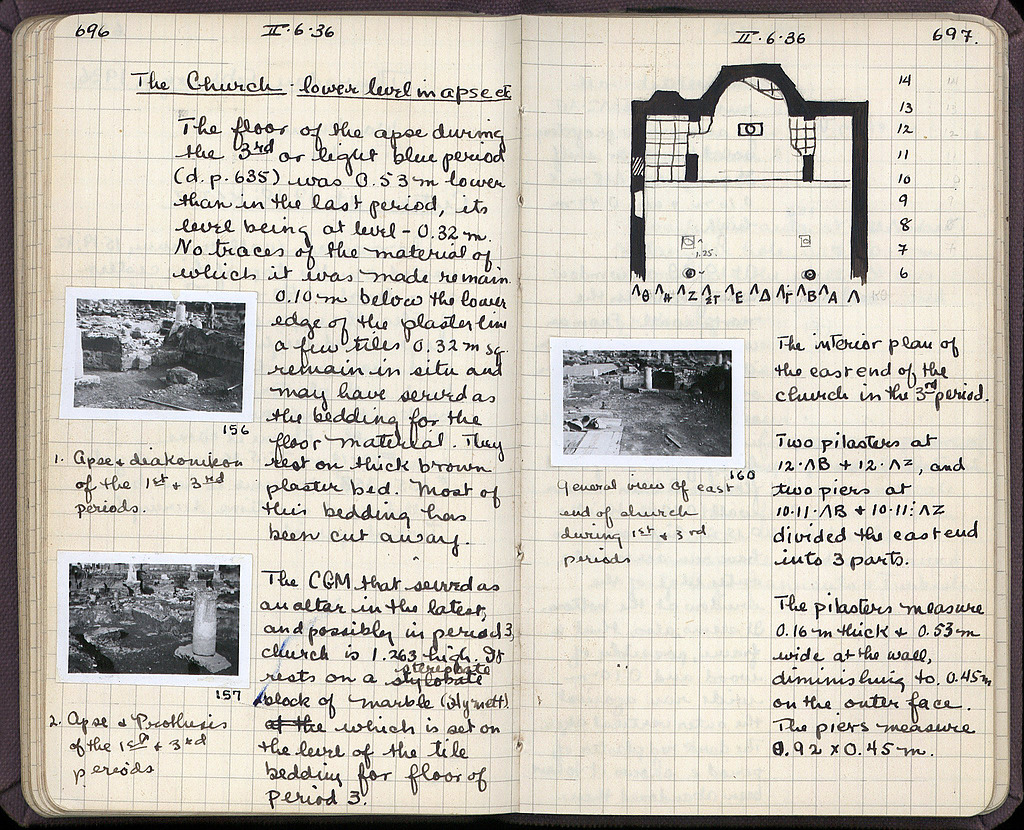 696
II·6·36
The Church - lower level in apse etc
The floor of the apse during
the 3rd or light blue period
(d. p. 635) was 0.53 m lower
than in the last period, its
level being at level - 0.32 m.
No traces of the material of
which it was made remain.
0.10 m below the lower
edge of the plaster line
a few tiles 0.32 m sq.
remain in situ and
may have served as
the bedding for the
floor material. They
rest on thick brown
plaster bed. Most of
this bedding has
been cut away.
156
1. Apse & diakonikon
of the 1st & 3rd
periods.
The CGM that served as
an altar in the latest,
and possibly in period 3,
church is 1.263 high. It
rests on a stylobate
stereobate
block of marble (Hymett)
at the which is set on
the level of the tile
bedding for floor of
period 3.
157
2. Apse & Prothesis
of the 1st & 3rd
periods
II·6·36
697.
14
13
12
11
10
9
8
7
6
1.25.
ΛΘ ΛΗ ΛΖ ΛΣΤ ΛΕ ΛΔ ΛΓ ΛΒ ΛΑ Λ
160
General view of east
end of church
during 1st & 3rd
periods
The interior plan of
the east end of the
church in the 3rd period.
Two pilasters at
12·ΛΒ + 12·ΛΖ, and
two piers at
10-11·ΛΒ + 10-11·ΛΖ
divided the east end
into 3 parts.
The pilasters measure
0.16 m thick & 0.53 m
wide at the wall,
diminishing to 0.45 m
on the outer face.
The piers measure
0.92 x 0.45 m.